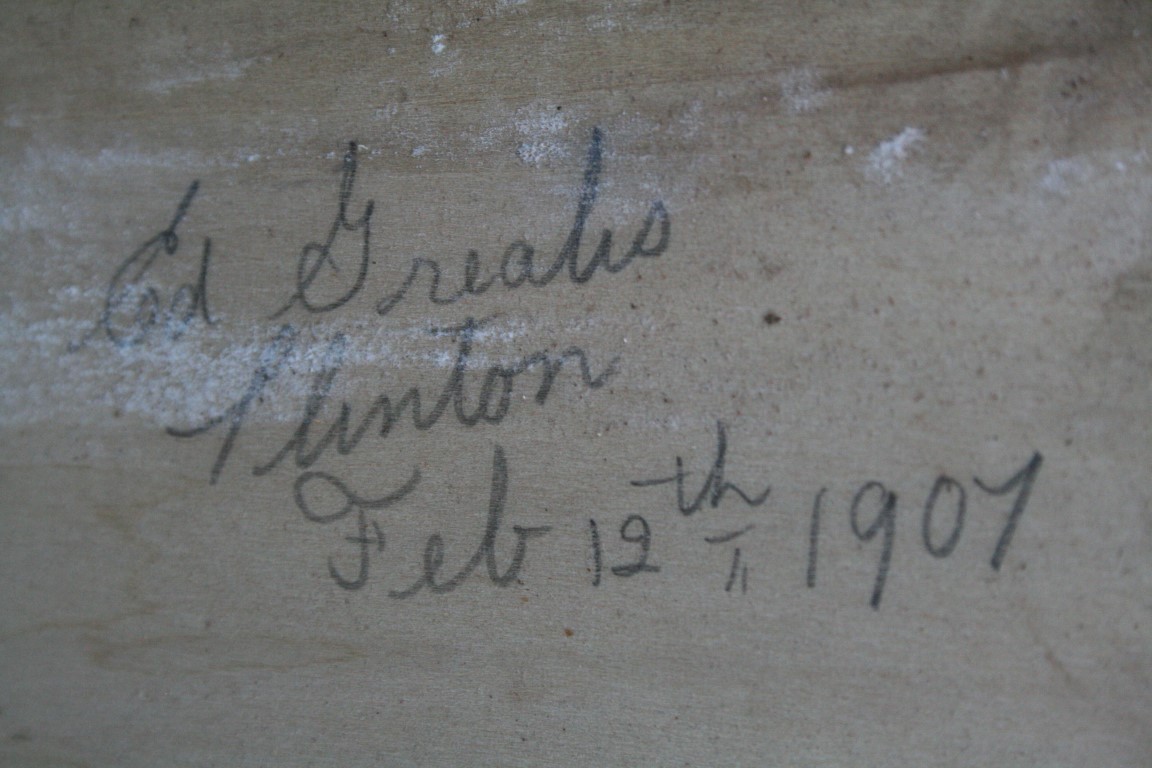 Ed
Clinton
Feb 12th 1907